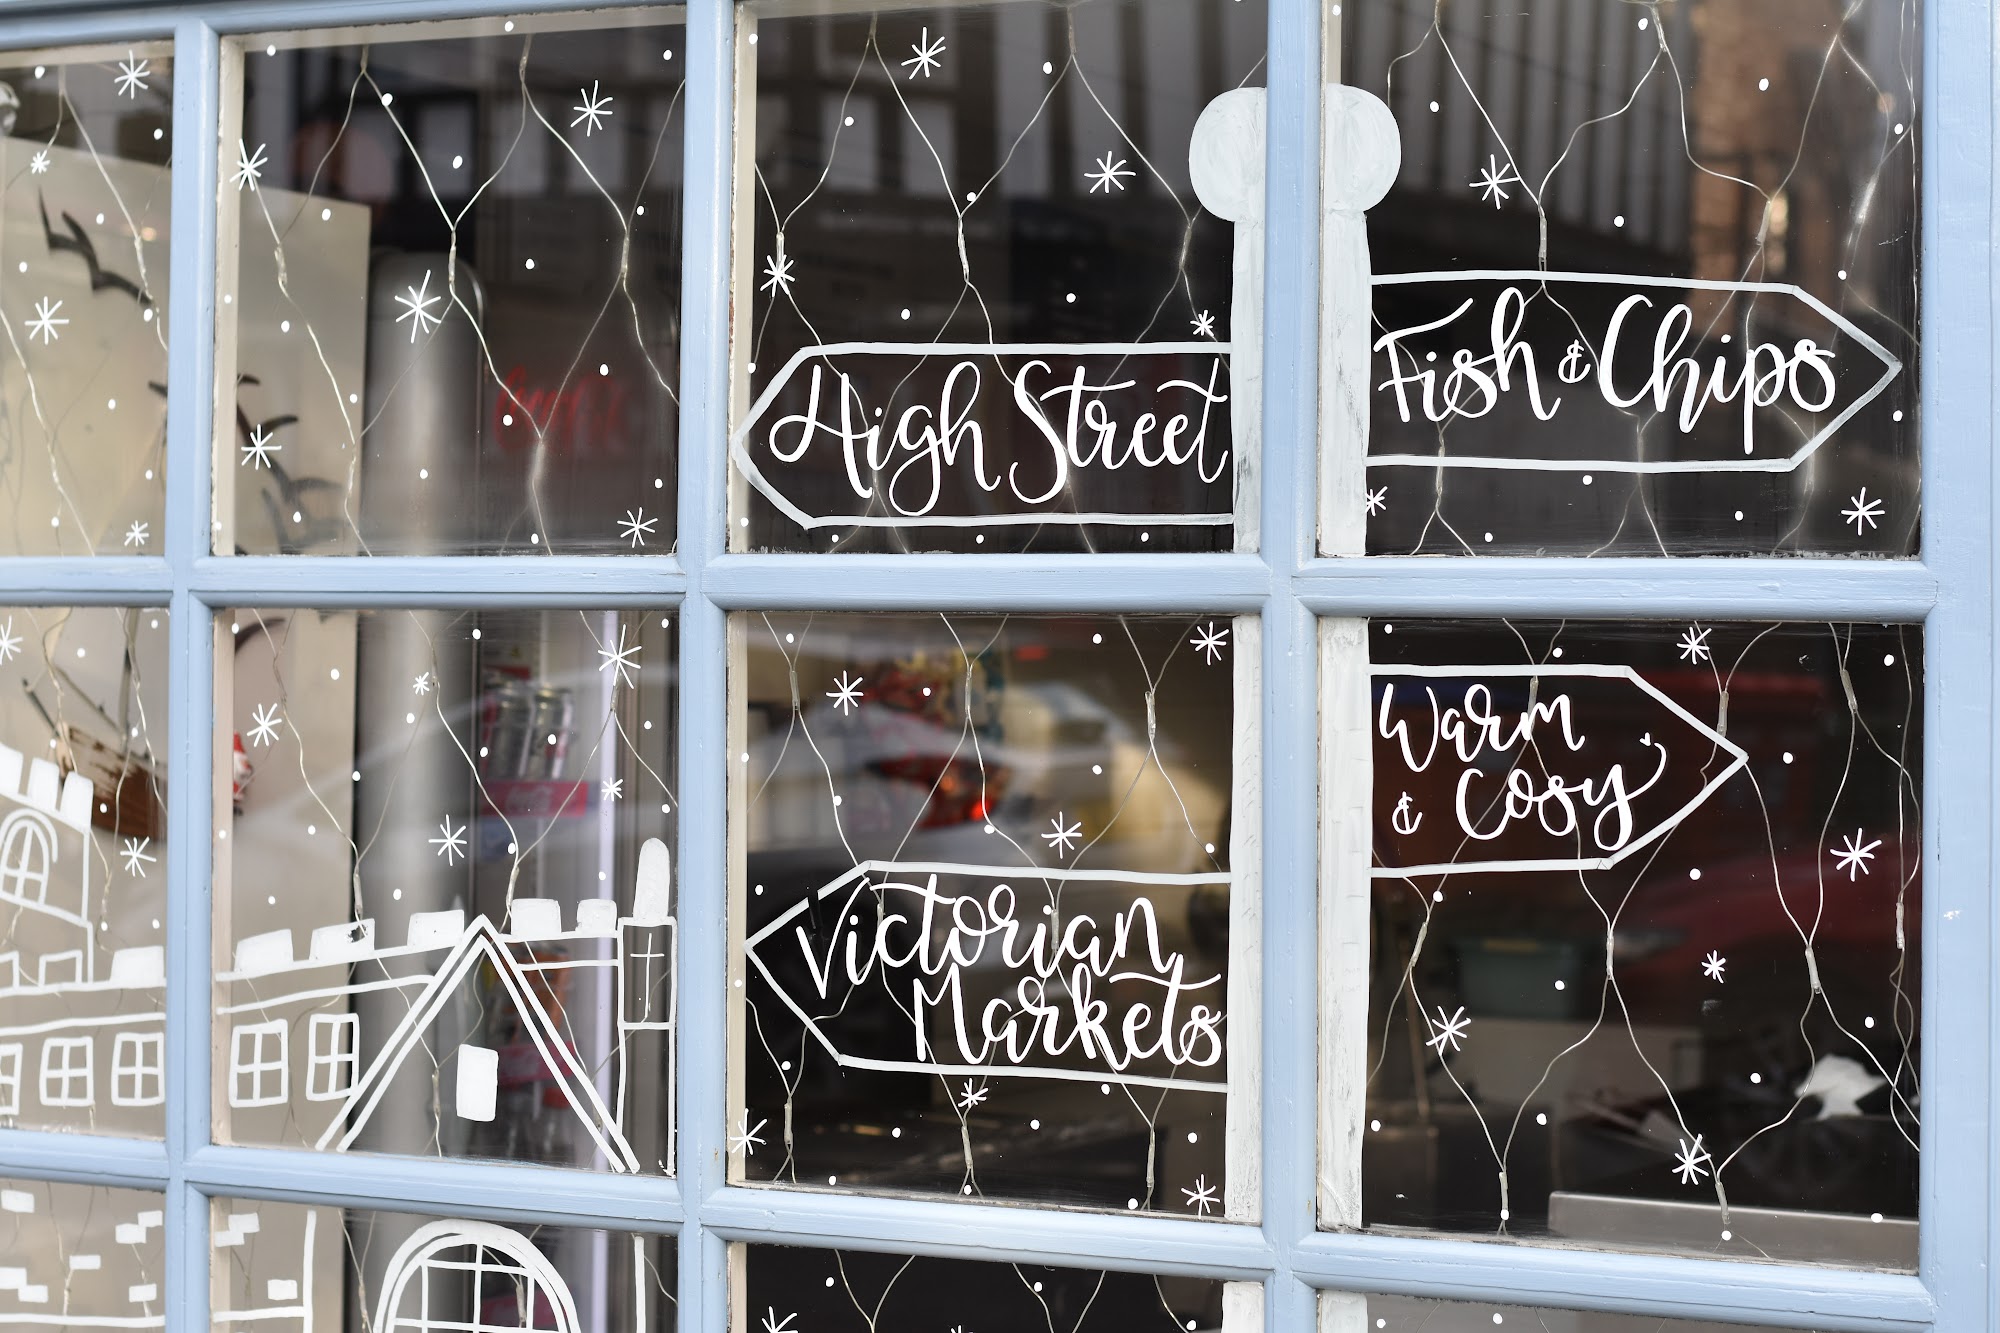 High Street
Fish & Chips
Warm
& Cosy
Victorian
Markets